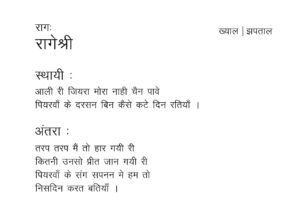 रागः
रागेश्री
ख्याल | झपताल
स्थायी :
आली री जियरा मोरा नाही चैन पावे
पियरवाँ के दरसन बिन कैसे कटे दिन रतियाँ ।
अंतरा :
तरप तरप मैं तो हार गयी री
कितनी उनसो प्रीत जान गयी री
पियरवाँ के संग सपनन ने हम तो
निसदिन करत बतियाँ ।